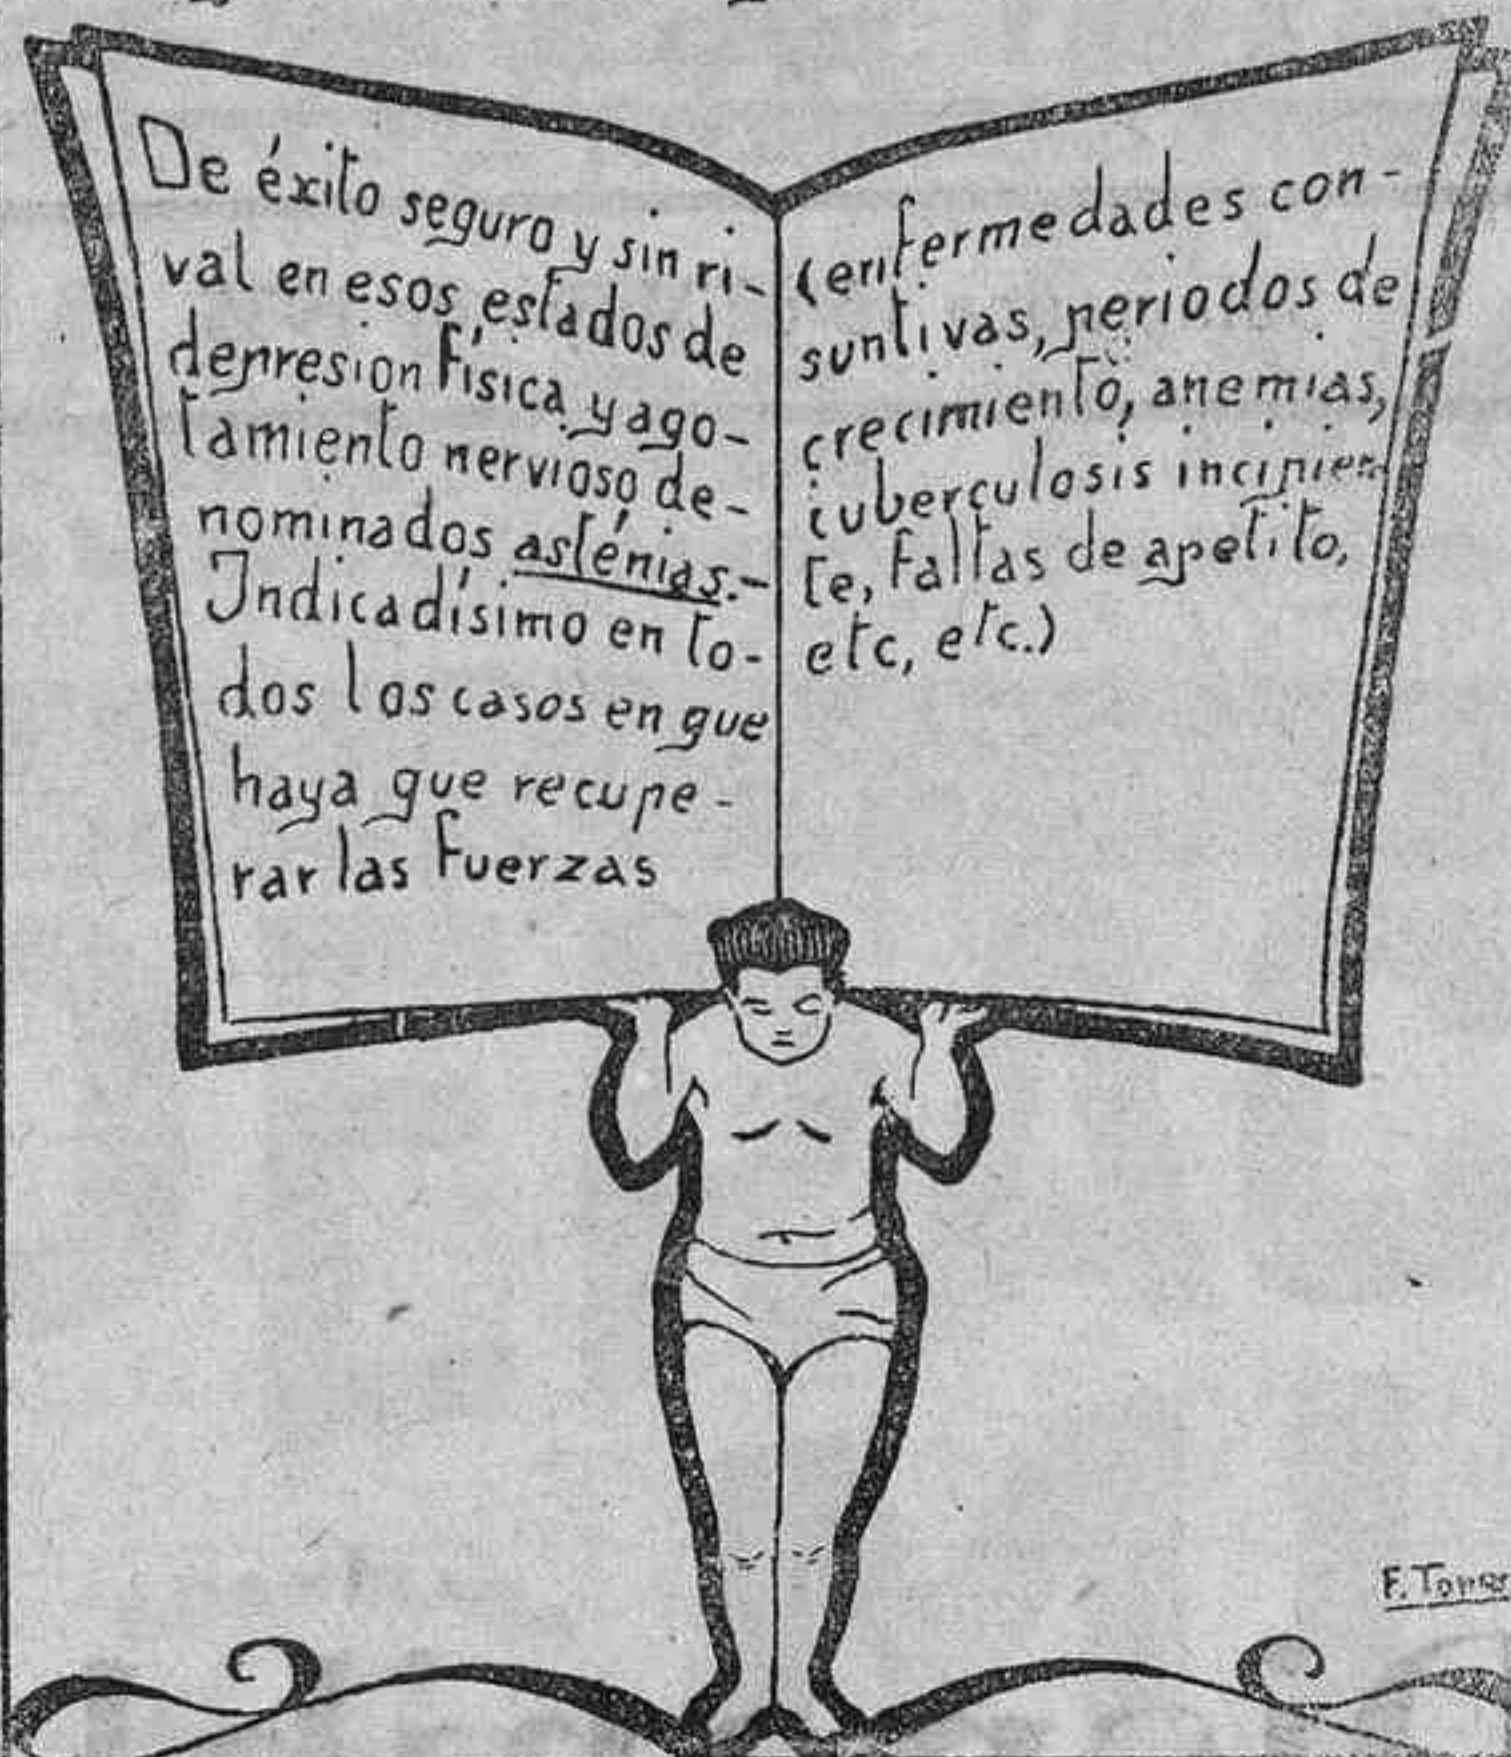 De éxito seguro y sin ri-
val en esos estados de
depresion física y ago-
tamiento nervioso de-
nominados asténias.-
Indicadísimo en to-
dos los casos en que
haya que recupe-
rar las fuerzas
(enfermedades con-
suntivas, periodos de
crecimiento, anemias,
tuberculosis incipien-
te, faltas de apetito,
etc, etc.)
F. Torres